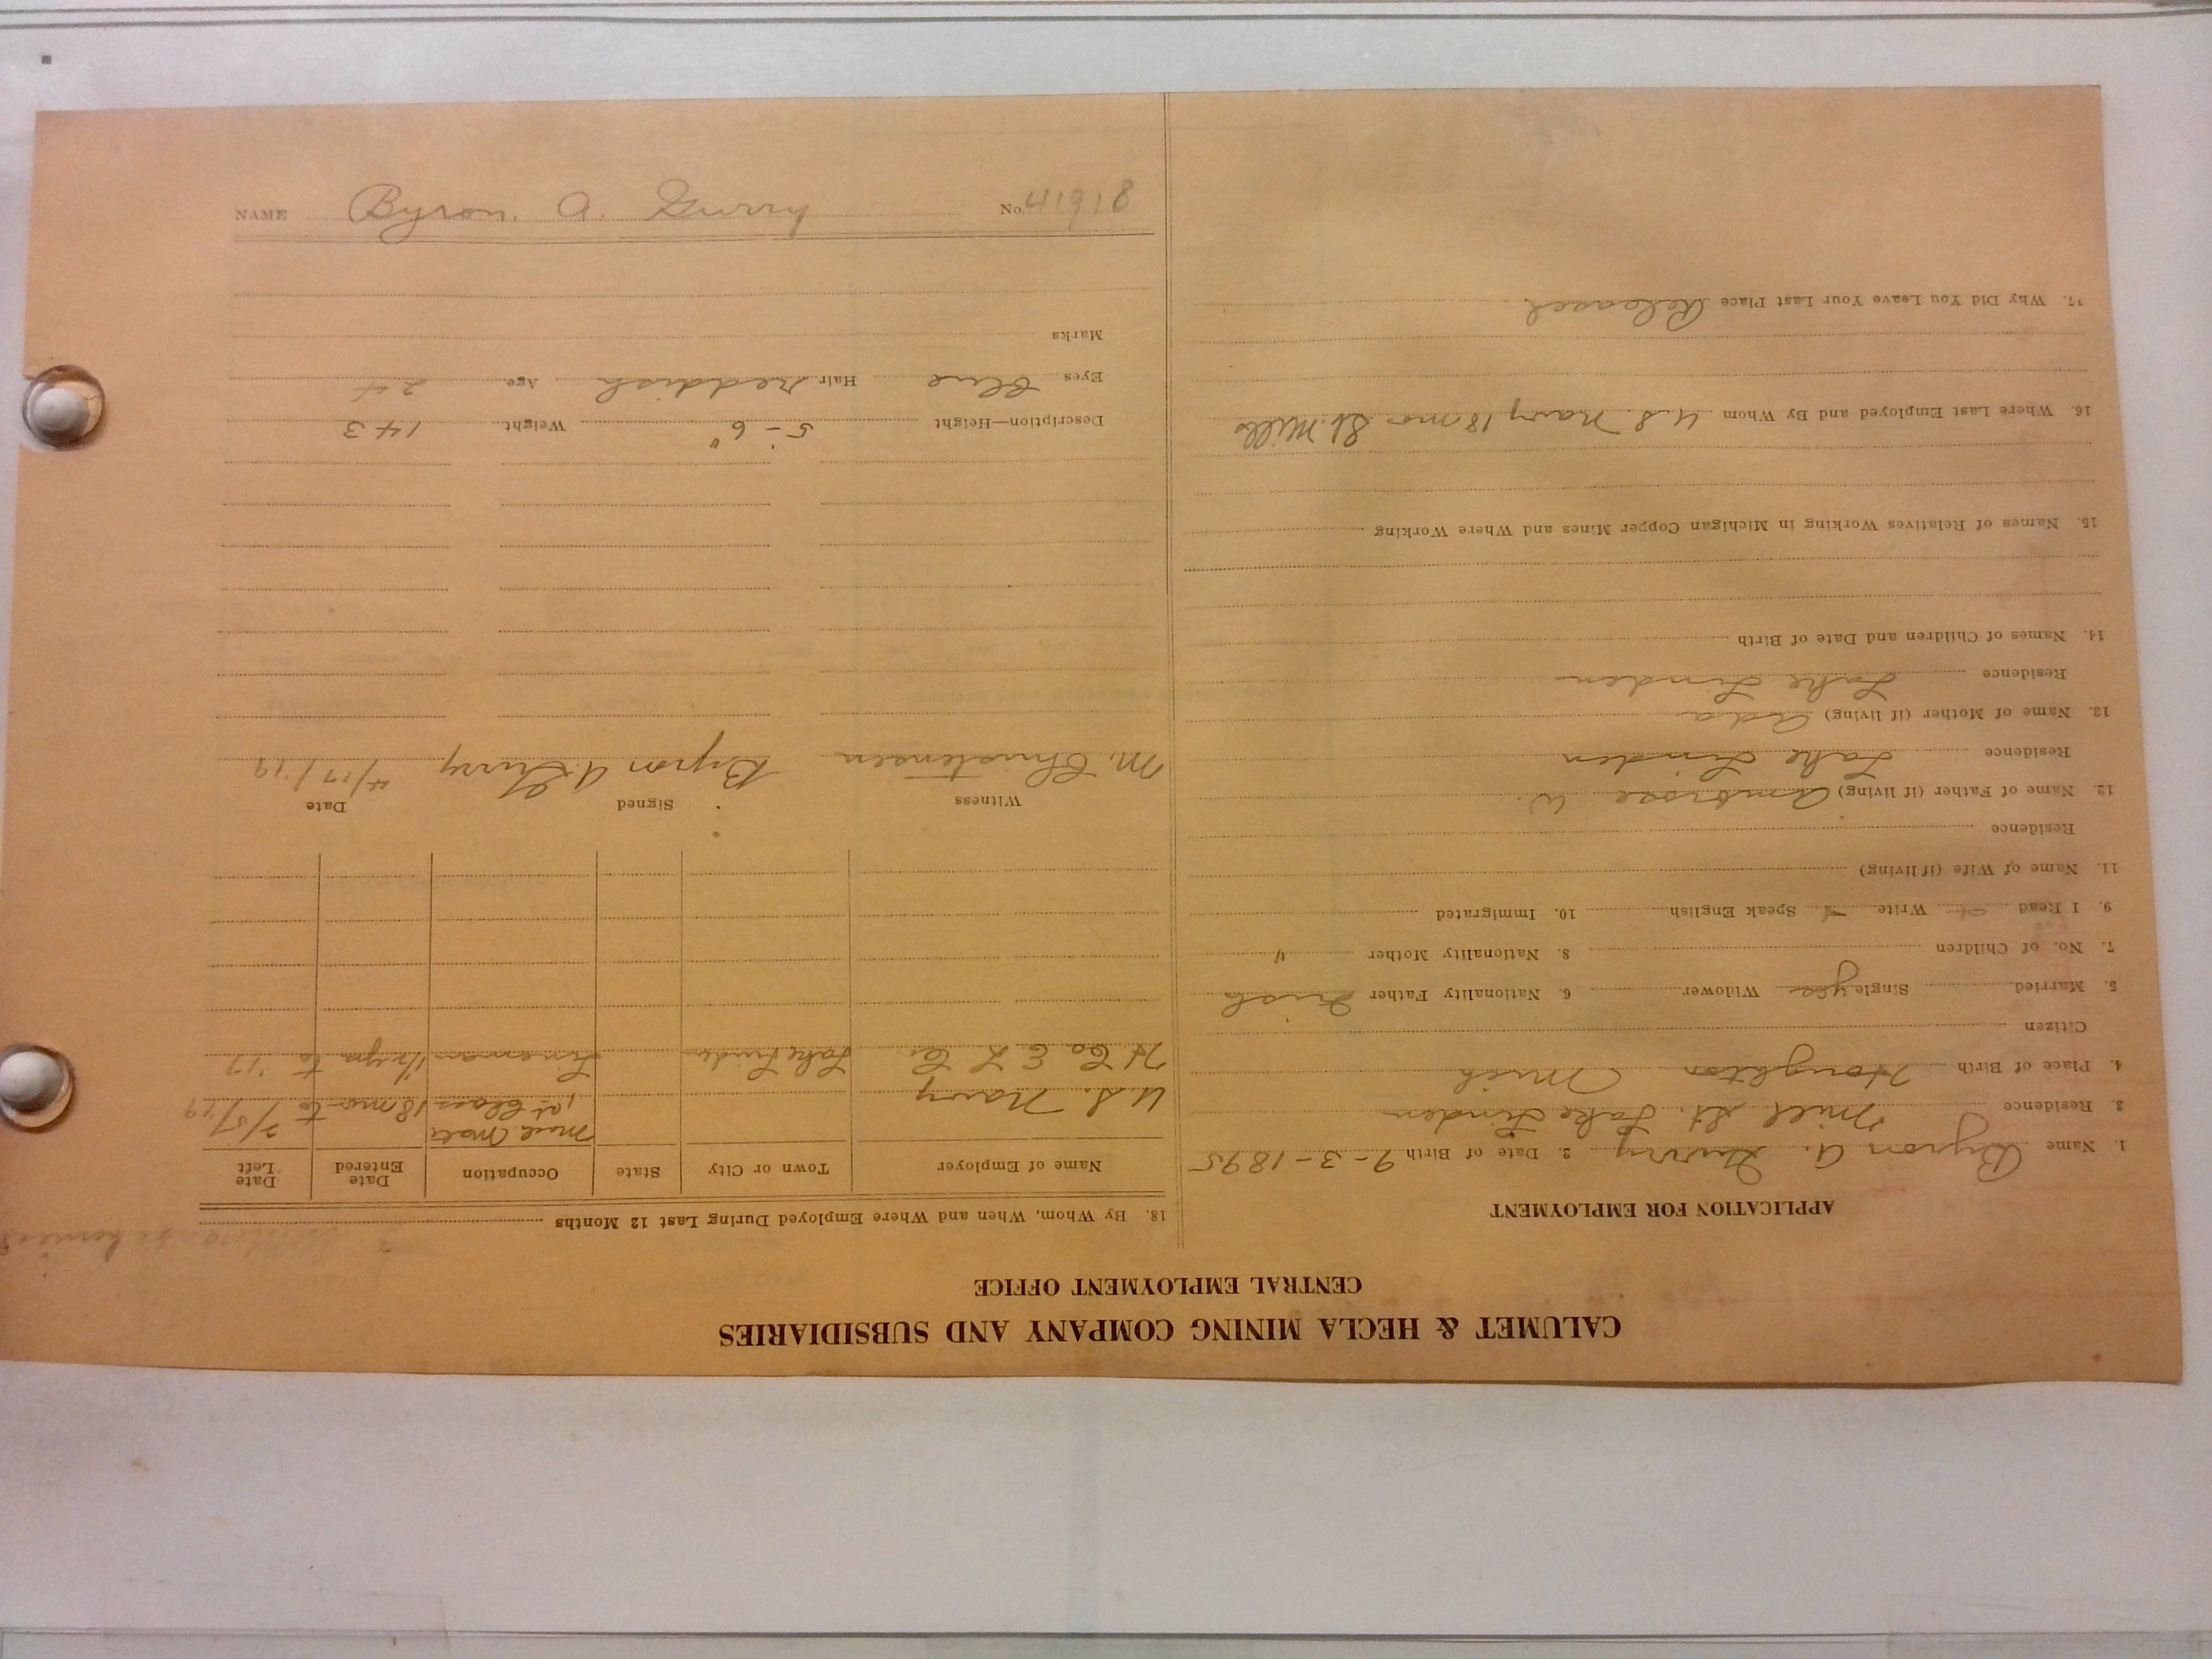 CALUMET & HECLA MINING COMPANY AND SUBSIDIARIES
CENTRAL EMPLOYMENT OFFICE
APPLICATION FOR EMPLOYMENT
1. Name Byron A. Gurry 2. Date of Birth 9-3-1895
3. Residence Mill St. Lake Linden
4. Place of Birth Houghton Mich
Citizen
5. Married Single yes Widower 6. Nationality Father Irish
7. No. of Children 8. Nationality Mother "
9. I Read Write Speak English 10. Immigrated
11. Name of Wife (if living)
Residence
12. Name of Father (if living) Ambrose W.
Residence Lake Linden
13. Name of Mother (if living) Ada
Residence Lake Linden
14. Names of Children and Date of Birth
15. Names of Relatives Working in Michigan Copper Mines and Where Working
16. Where Last Employed and By Whom U.S. Navy 18 mo St. Mills
17. Why Did You Leave Your Last Place Released
18. By Whom, When and Where Employed During Last 12 Months
Name of Employer Town or City State Occupation Date Entered Date Left
U.S. Navy Mach. Mate 1st Class 18 mo to 2/5/19
H Co E L Co Lake Linden Lineman 1½ yrs to '17
Witness Signed Date
M. Christensen Byron A. Gurry 4/17/19
Description—Height 5'-6" Weight 143
Eyes blue Hair reddish Age 24
Marks
NAME Byron. A. Gurry No. 41918